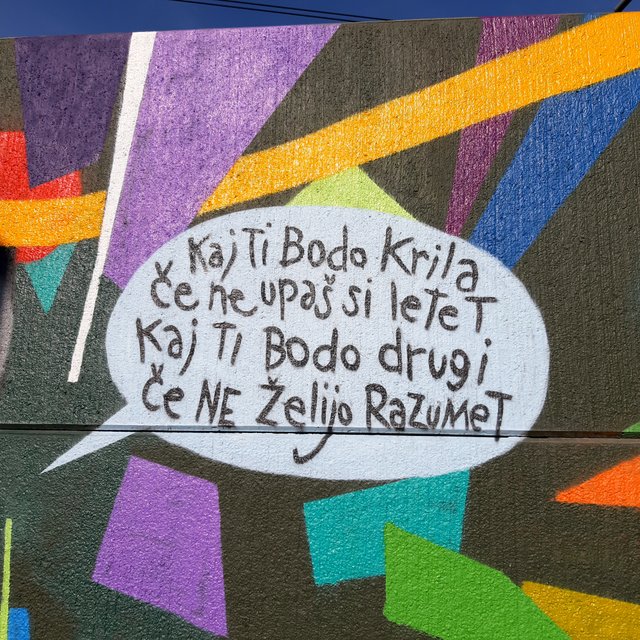 Kaj Ti Bodo Krila
Če ne upaš si leteT
Kaj Ti Bodo drugi
Če NE Želijo RAZUMeT